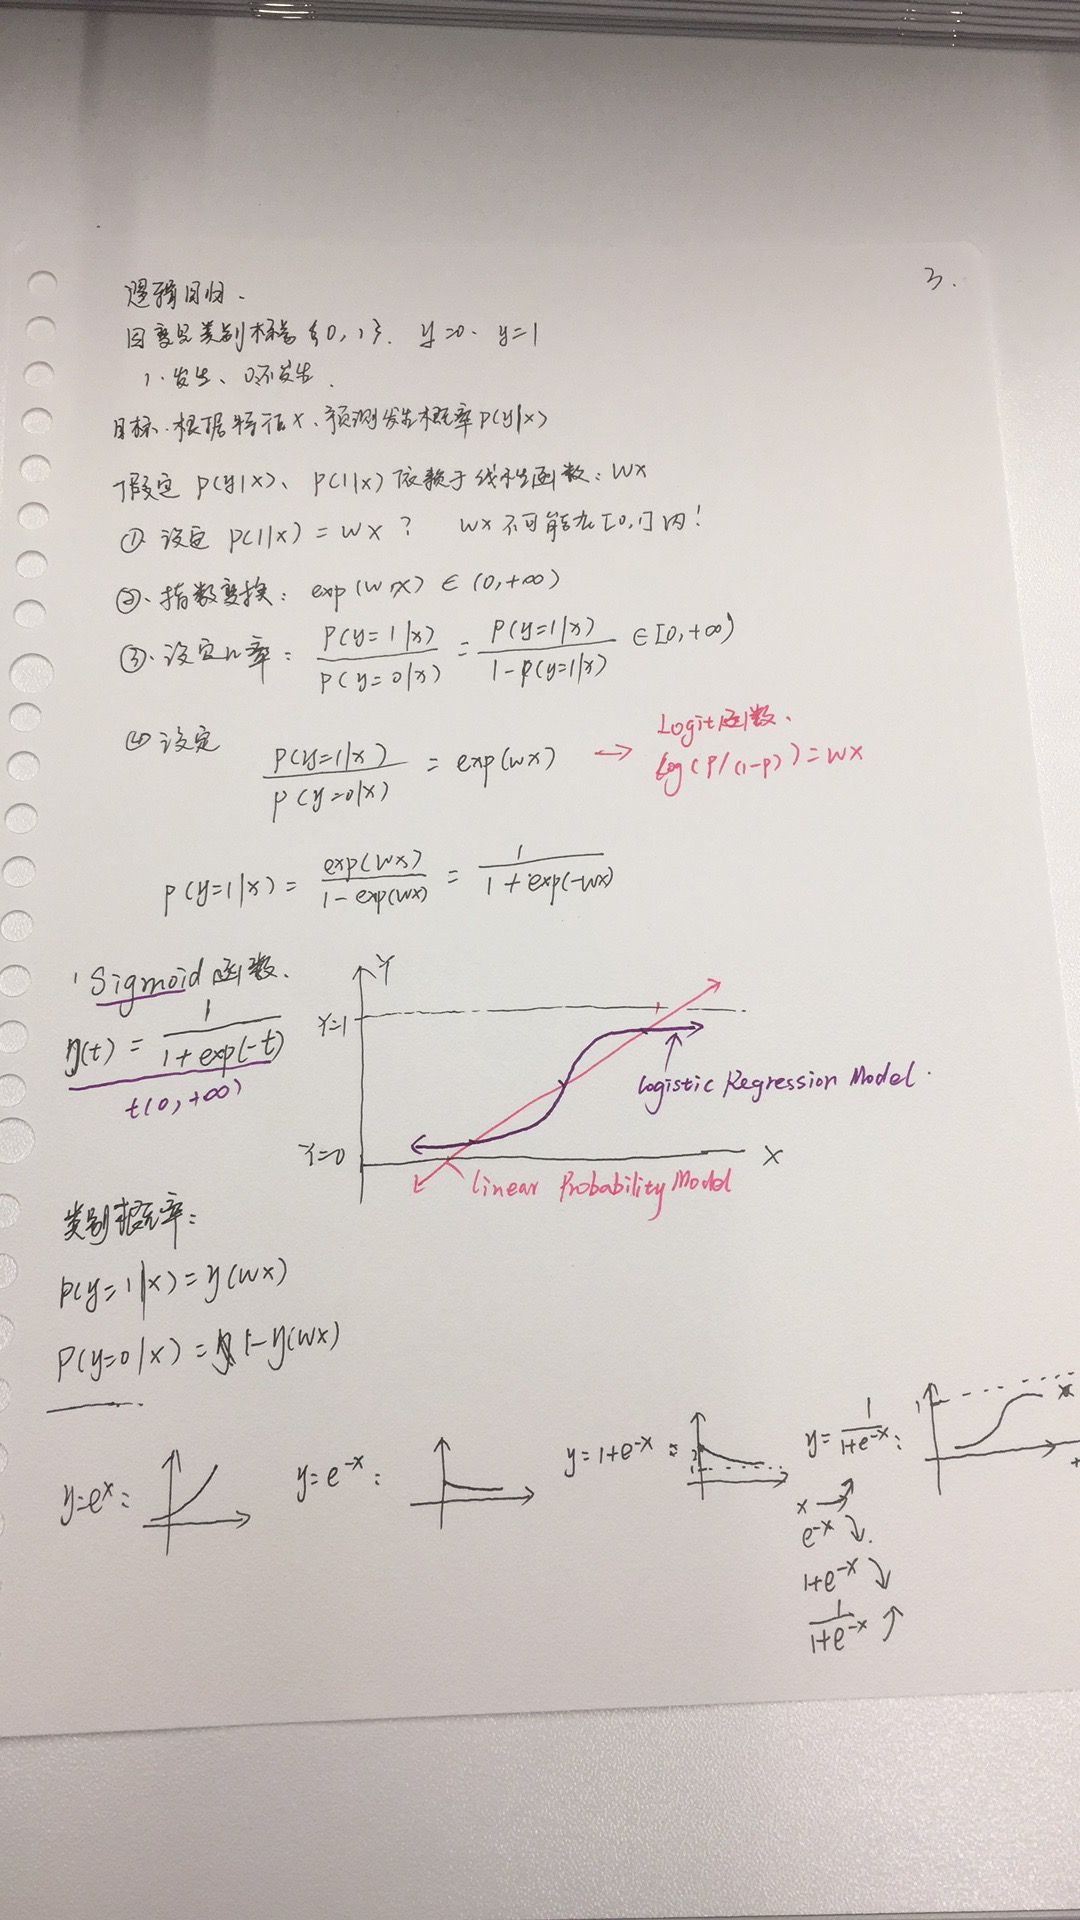 3.
逻辑回归.
因变量类别标签{0,1}. y=0. y=1
1.发生、0不发生.
目标.根据特征x.预测发生概率P(y|x)
假定 P(y|x)、P(1|x)依赖于线性函数: wx
① 设定 P(1|x) = wx ? wx不可能在[0,1]内!
②.指数变换: exp(wx) ∈ (0,+∞)
③.设定几率: P(y=1|x)/P(y=0|x) = P(y=1|x)/1-P(y=1|x) ∈[0,+∞)
④ 设定 P(y=1|x)/P(y=0|x) = exp(wx) → Logit函数.
log(P/(1-P))=wx
P(y=1|x) = exp(wx)/1-exp(wx) = 1/1+exp(-wx)
Sigmoid函数.
y(t) = 1/1+exp(-t)
t(0,+∞)
Y
Y=1
Logistic Regression Model.
Y=0
X
Linear Probability Model
类别概率:
P(y=1|x)=y(wx)
P(y=0|x)=1-y(wx)
y=e^x: y=e^-x: y=1+e^-x: 2 1 y=1/1+e^-x: 1
x ↗
e^-x ↘.
1+e^-x ↘
1/1+e^-x ↗